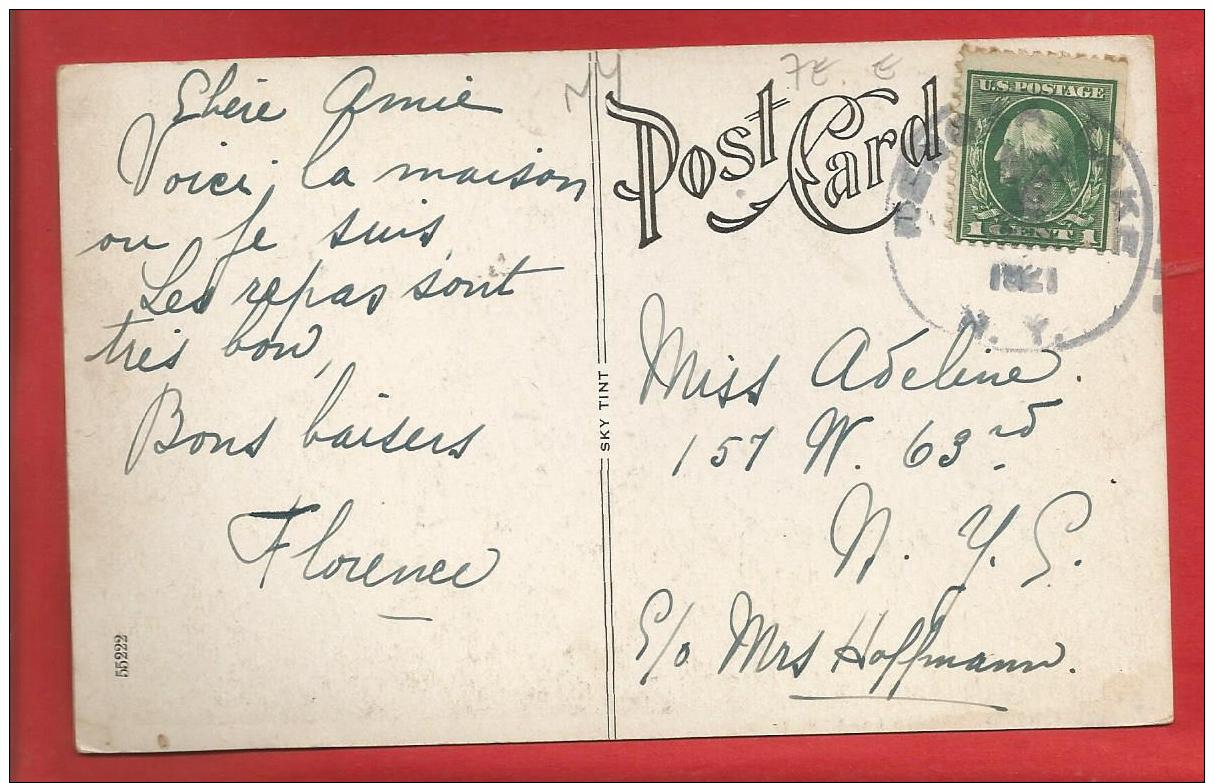 Chère Amie
Voici, la maison
ou je suis,
Les repas sont
très bon,
Bons baisers
Florence
55222
SKY TINT
NY
7E E
Post Card
U.S. POSTAGE
1 CENT 1
1921
N. Y.
Miss Adeline.
157 W. 63rd
N. Y. C.
C/o Mrs Hoffmann.